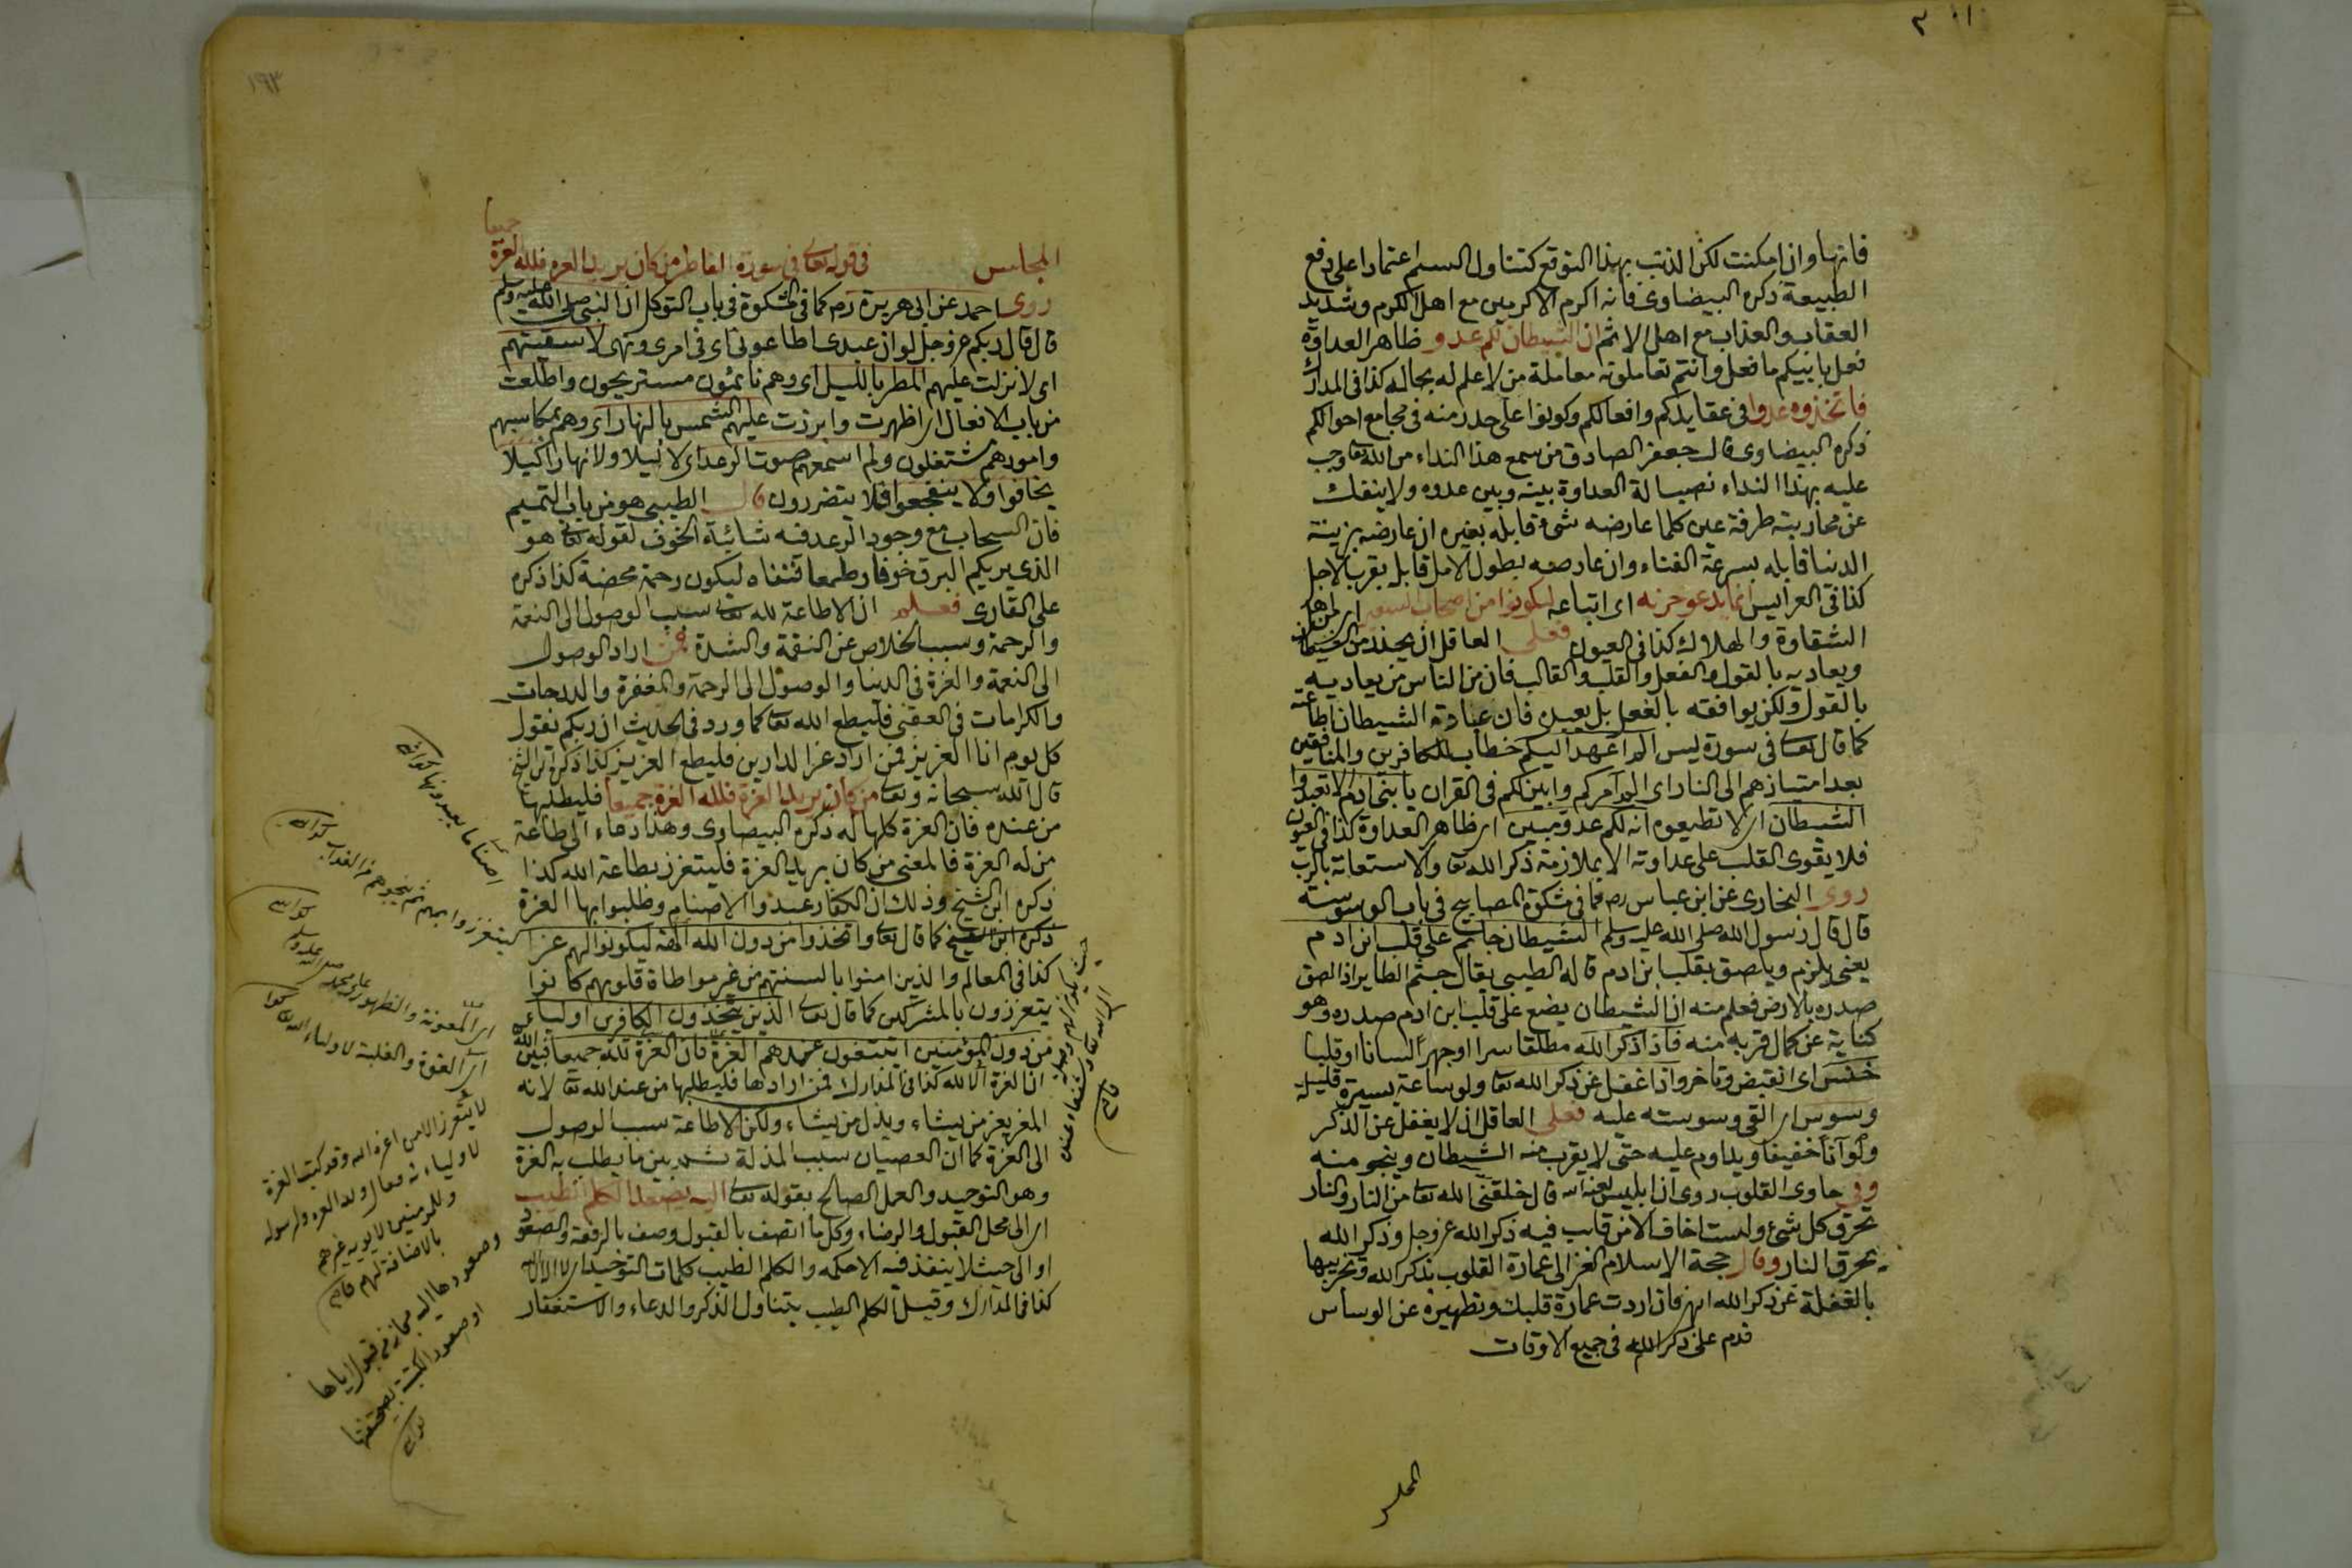 فانها وان امكنت لكن الذنب بهذا التوقع كتناول السم اعتمادا على دفع
الطبيعة ذكره البيضاوى فانه اكرم الاكرمين مع اهل الكرم وشديد
العقاب والعذاب مع اهل الاثم ان الشيطان لكم عدو ظاهر العداوة
فعل بابيكم ما فعل وانتم تعاملونه معاملة من لا علم له بحاله كذا فى المدارك
فاتخذوه عدوا فى عقايدكم وافعالكم وكونوا على حذر منه فى مجامع احوالكم
ذكره البيضاوى قال جعفر الصادق من سمع هذا النداء من الله تعا وجب
عليه بهذا النداء نصب الة العداوة بينه وبين عدوه ولا ينفك
عن محاربته طرفة عين كلما عارضه شئ قابله بغيره ان عارضه بزينة
الدنيا قابله بسرعة الفناء وان عارضه بطول الامل قابله بقرب الاجل
كذا فى العرايس انما يدعو حزبه اى اتباعه ليكونوا من اصحاب السعير
الشقاوة والهلاك كذا فى العيون فعلى العاقل ان يحذر من الشيطان
ويعاديه بالقول والفعل والقلب والقالب فان من الناس من يعاديه
بالقول ولكن يوافقه بالفعل بل يعبده فان عبادة الشيطان اطاعته
كما قال تعا فى سورة يس الم اعهد اليكم خطاب للكافرين والمنافقين
بعد امتيازهم الى النار اى الم آمركم وابين لكم فى القران يا بنى ادم الا تعبدوا
الشيطان اى لا تطيعوه انه لكم عدو مبين اى ظاهر العداوة كذا فى العيون
فلا يقوى القلب على عداوته الا بملازمة ذكر الله تعا والاستعانة بالرب
روى البخارى عن ابن عباس رض كما فى مشكوة المصابيح فى باب الوسوسة
قال قال رسول الله صلى الله عليه وسلم الشيطان جاثم على قلب ابن ادم
يعنى يلزم ويلصق بقلب ابن ادم قاله الطيبى يقال جثم الطاير اذا الصق
صدره بالارض فعلم منه ان الشيطان يضع على قلب ابن ادم صدره وهو
كناية عن كمال قربه منه فاذا ذكر الله مطلقا سرا او جهرا لسانا او قلبا
خنس اى انقبض وتاخر واذا غفل عن ذكر الله تعا ولو ساعة يسيرة قليلة
وسوس اى القى وسوسته عليه فعلى العاقل ان لا يغفل عن الذكر
ولو آنا خفيفا ويداوم عليه حتى لا يقرب منه الشيطان وينجو منه
وفى حاوى القلوب روى ان ابليس لعنه الله قال خلقنى الله تعا من النار والنار
تحرق كل شئ ولست اخاف الا من قلب فيه ذكر الله عز وجل وذكر الله
يحرق النار وقال حجة الاسلام الغزالى عمارة القلوب بذكر الله وتخريبها
بالغفلة عن ذكر الله انتهى فان اردت عمارة قلبك وتطهيره عن الوسواس
فدم على ذكر الله فى جميع الاوقات
المجلس
١٩٣
المجلس فى قوله تعا فى سورة الفاطر من كان يريد العزة فلله العزة
جميعا
روى احمد عن ابى هريرة رض كما فى المشكوة فى باب التوكل ان النبى صلى الله عليه وسلم
قال قال ربكم عز وجل لو ان عبيدى اطاعونى اى فى امرى ونهى لاسقيتهم
اى لانزلت عليهم المطر بالليل اى وهم نائمون مستريحون واطلعت
من باب الافعال اى اظهرت وابرزت عليهم الشمس بالنهار اى وهم بمكاسبهم
وامورهم مشتغلون ولم اسمعهم صوت الرعد اى لا ليلا ولا نهارا كيلا
يخافوا ولا ينفجعوا فلا يتضررون قال الطيبى هو من باب التتميم
فان السحاب مع وجود الرعد فيه شائبة الخوف لقوله تعا هو
الذى يريكم البرق خوفا وطمعا فنفاه ليكون رحمة محضة كذا ذكره
على القارى فعلم ان الاطاعة لله تعا سبب الوصول الى النعمة
والرحمة وسبب الخلاص عن النقمة والشدة فمن اراد الوصول
الى النعمة والعزة فى الدنيا والوصول الى الرحمة والمغفرة والدرجات
والكرامات فى العقبى فليطع الله تعا كما ورد فى الحديث ان ربكم يقول
كل يوم انا العزيز فمن اراد عز الدارين فليطع العزيز كذا ذكره ابن الشيخ
قال الله سبحانه وتعا من كان يريد العزة فلله العزة جميعا فليطلبها
من عنده فان العزة كلها له ذكره البيضاوى وهذا دعاء الى طاعة
من له العزة فالمعنى من كان يريد العزة فليتعزز بطاعة الله كذا
ذكره ابن الشيخ وذلك ان الكفار عبدوا الاصنام وطلبوا بها العزة
ذكره ابن الشيخ كما قال تعا واتخذوا من دون الله الهة ليكونوا لهم عزا
كذا فى المعالم والذين امنوا بالسنتهم من غير مواطاة قلوبهم كانوا
يتعززون بالمشركين كما قال تعا الذين يتخذون الكافرين اولياء
من دون المؤمنين ايبتغون عندهم العزة فان العزة لله جميعا فبين
ان العزة لله كذا فى المدارك فمن ارادها فليطلبها من عند الله تعا لانه
المعز يعز من يشاء ويذل من يشاء ولكن الاطاعة سبب الوصول
الى العزة كما ان العصيان سبب المذلة ثم بين ما يطلب به العزة
وهو التوحيد والعمل الصالح بقوله تعا اليه يصعد الكلم الطيب
اى الى محل القبول والرضاء وكل ما اتصف بالقبول وصف بالرفعة والصعود
او الى حيث لا ينفذ فيه الا حكمه والكلم الطيب كلمات التوحيد اى لا اله الا الله
كذا فى المدارك وقيل الكلم الطيب يتناول الذكر والدعاء والاستغفار
اصناما يعبدونها
ليتعززوا بهم
اى المعونة والظهور
اى القوة والغلبة لاولياء الله
لا يتعزز الا من اعزه الله وقد كتب العزة
لاوليائه فقال ولله العزة ولرسوله
وللمؤمنين
بالاضافة لهم
وصعودها اليه مجاز عن قبوله اياها
او صعود الكتبة بصحيفتها